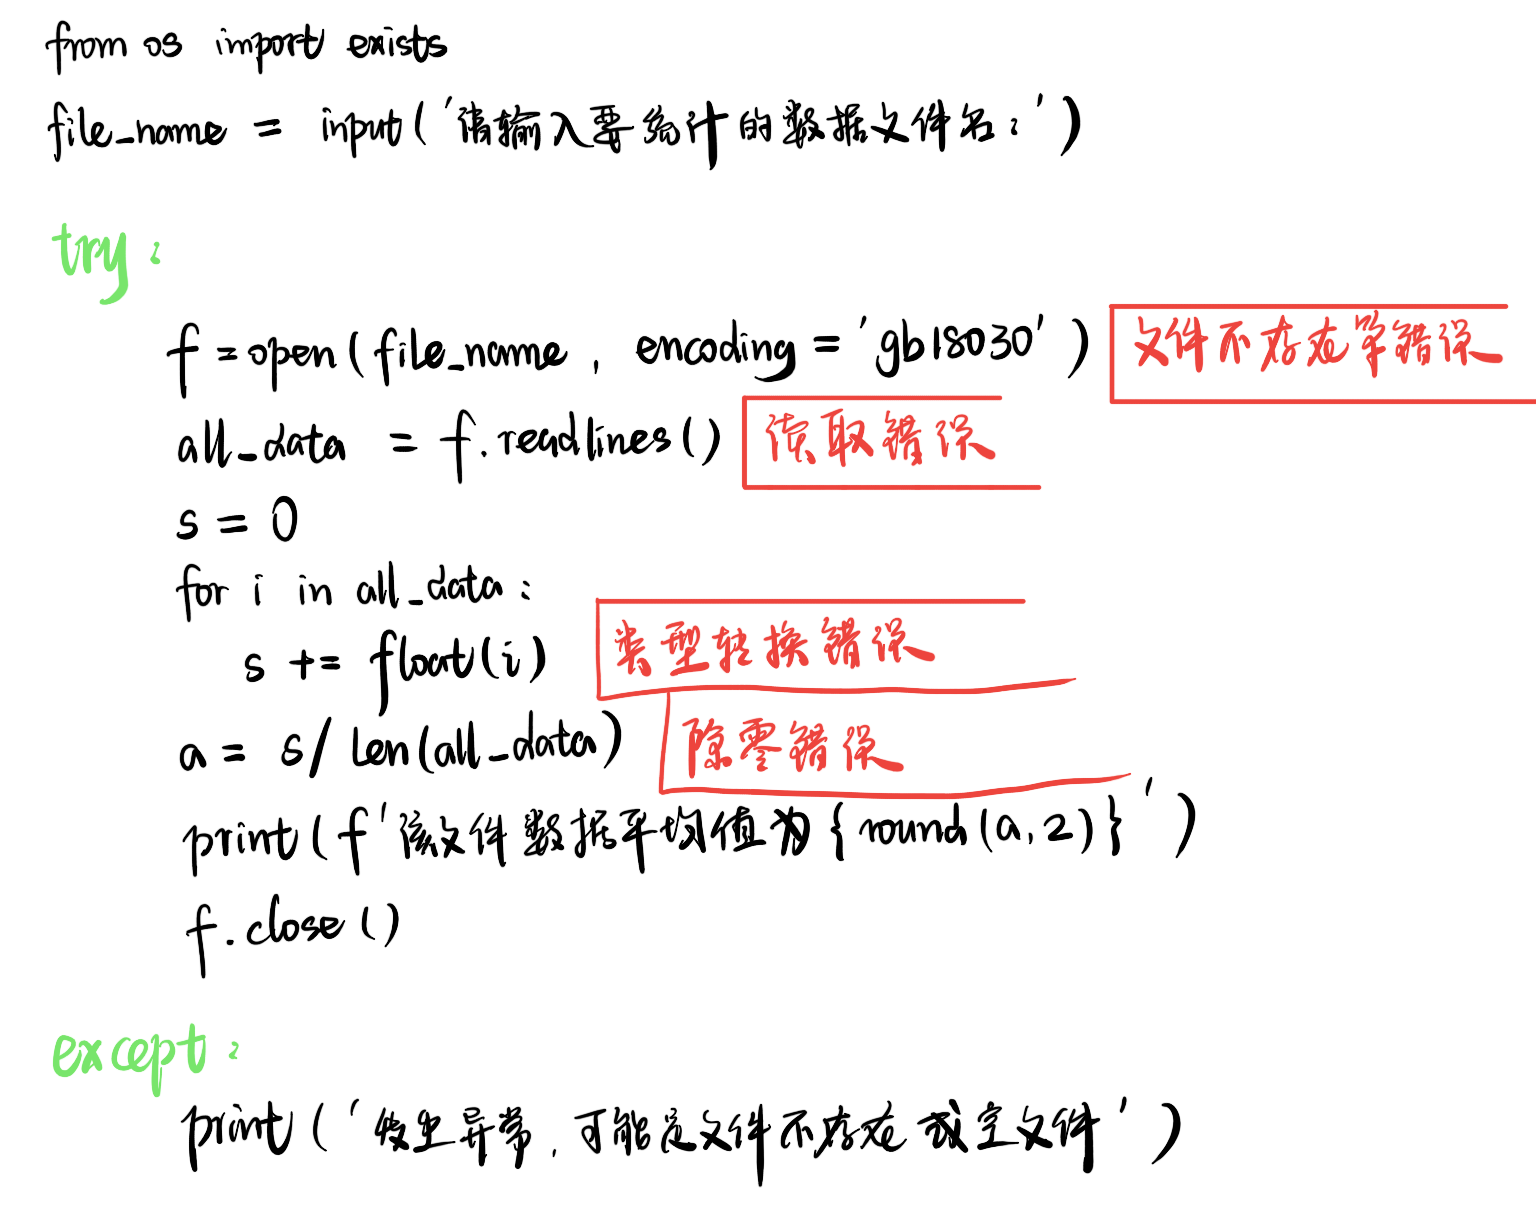 from os import exists
file_name = input('请输入要统计的数据文件名:')
try:
f=open(file_name, encoding='gb18030') 文件不存在等错误
all_data = f.readlines() 读取错误
s = 0
for i in all_data:
s += float(i) 类型转换错误
a = s/len(all_data) 除零错误
print(f'该文件数据平均值为{round(a,2)}')
f.close()
except:
print('发生异常,可能是文件不存在或空文件')